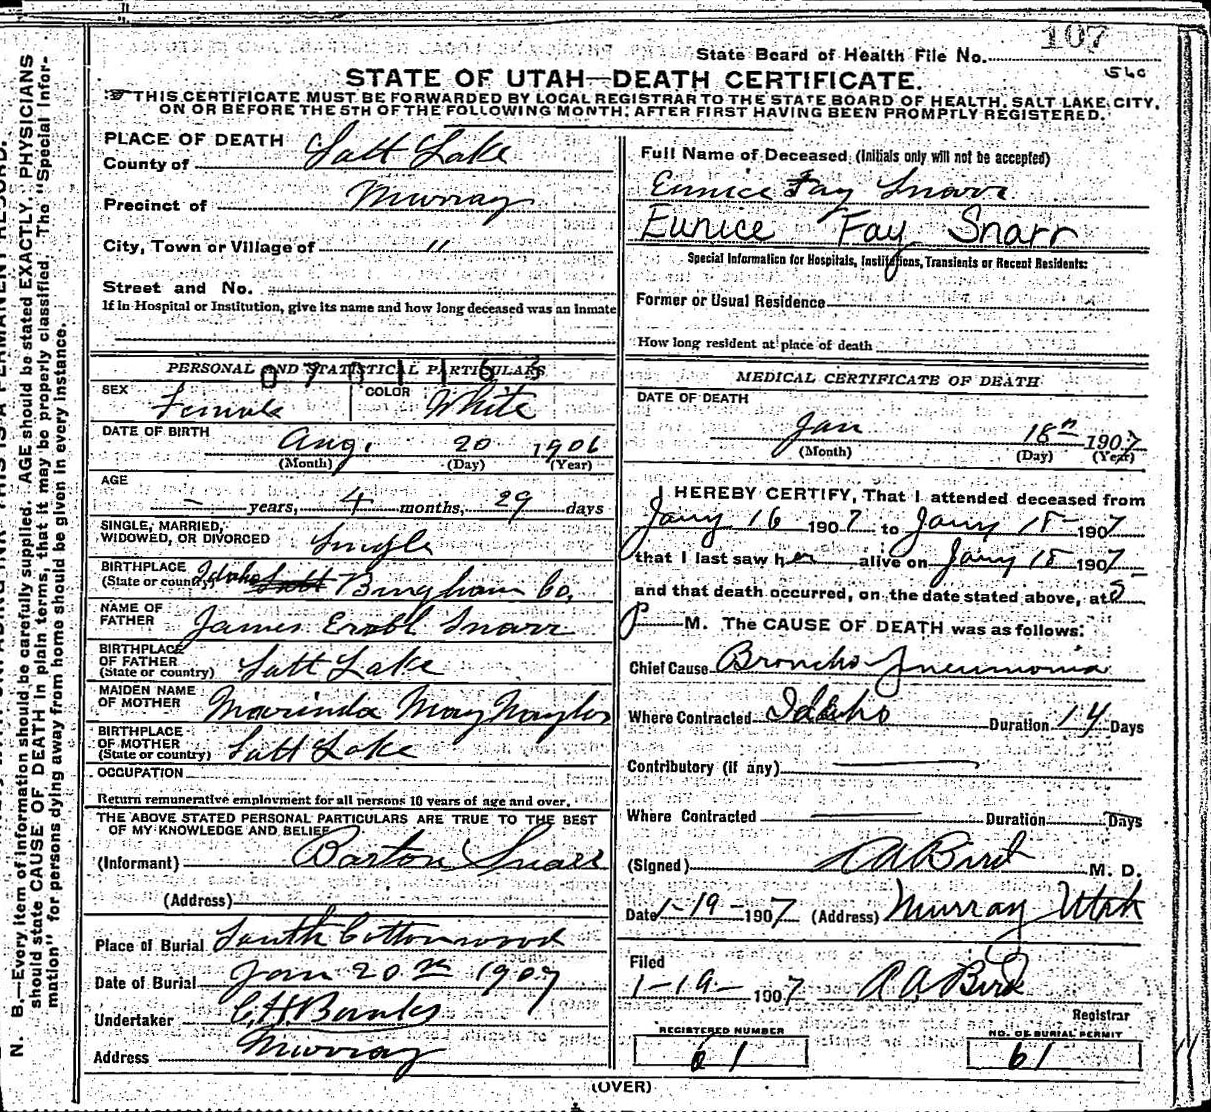 107
State Board of Health File No.
560
STATE OF UTAH—DEATH CERTIFICATE.
THIS CERTIFICATE MUST BE FORWARDED BY LOCAL REGISTRAR TO THE STATE BOARD OF HEALTH, SALT LAKE CITY,
ON OR BEFORE THE 5TH OF THE FOLLOWING MONTH, AFTER FIRST HAVING BEEN PROMPTLY REGISTERED.
PLACE OF DEATH
County of Salt Lake
Precinct of Murray
City, Town or Village of "
Street and No.
If in Hospital or Institution, give its name and how long deceased was an inmate
PERSONAL AND STATISTICAL PARTICULARS
SEX Female COLOR White
DATE OF BIRTH Aug. 20 1906
(Month) (Day) (Year)
AGE
— years, 4 months, 29 days
SINGLE, MARRIED,
WIDOWED, OR DIVORCED Single
BIRTHPLACE
(State or country) Idaho Bingham Co.
NAME OF
FATHER James Snarr
BIRTHPLACE
OF FATHER Salt Lake
(State or country)
MAIDEN NAME
OF MOTHER Marinda May Naylor
BIRTHPLACE
OF MOTHER Salt Lake
(State or country)
OCCUPATION
Return remunerative employment for all persons 10 years of age and over.
THE ABOVE STATED PERSONAL PARTICULARS ARE TRUE TO THE BEST
OF MY KNOWLEDGE AND BELIEF
(Informant) Barton Snarr
(Address)
Place of Burial South Cottonwood
Date of Burial Jan 20th 1907
Undertaker
Address Murray
Full Name of Deceased (Initials only will not be accepted)
Eunice Fay Snarr
Eunice Fay Snarr
Special Information for Hospitals, Institutions, Transients or Recent Residents:
Former or Usual Residence
How long resident at place of death
MEDICAL CERTIFICATE OF DEATH
DATE OF DEATH
Jan 18th 1907
(Month) (Day) (Year)
I HEREBY CERTIFY, That I attended deceased from
Jany 16 1907 to Jany 18 1907
that I last saw her alive on Jany 18 1907
and that death occurred, on the date stated above, at 5
P M. The CAUSE OF DEATH was as follows:
Chief Cause Broncho Pneumonia
Where Contracted Idaho Duration 14 Days
Contributory (if any)
Where Contracted Duration Days
(Signed) A A Bird M. D.
Date 1-19-1907 (Address) Murray Utah
Filed
1-19-1907 A A Bird
Registrar
REGISTERED NUMBER
61
NO. OF BURIAL PERMIT
61
(OVER)
N. B.—Every item of information should be carefully supplied. AGE should be stated EXACTLY. PHYSICIANS
should state CAUSE OF DEATH in plain terms, that it may be properly classified. The "Special Infor-
mation" for persons dying away from home should be given in every instance.